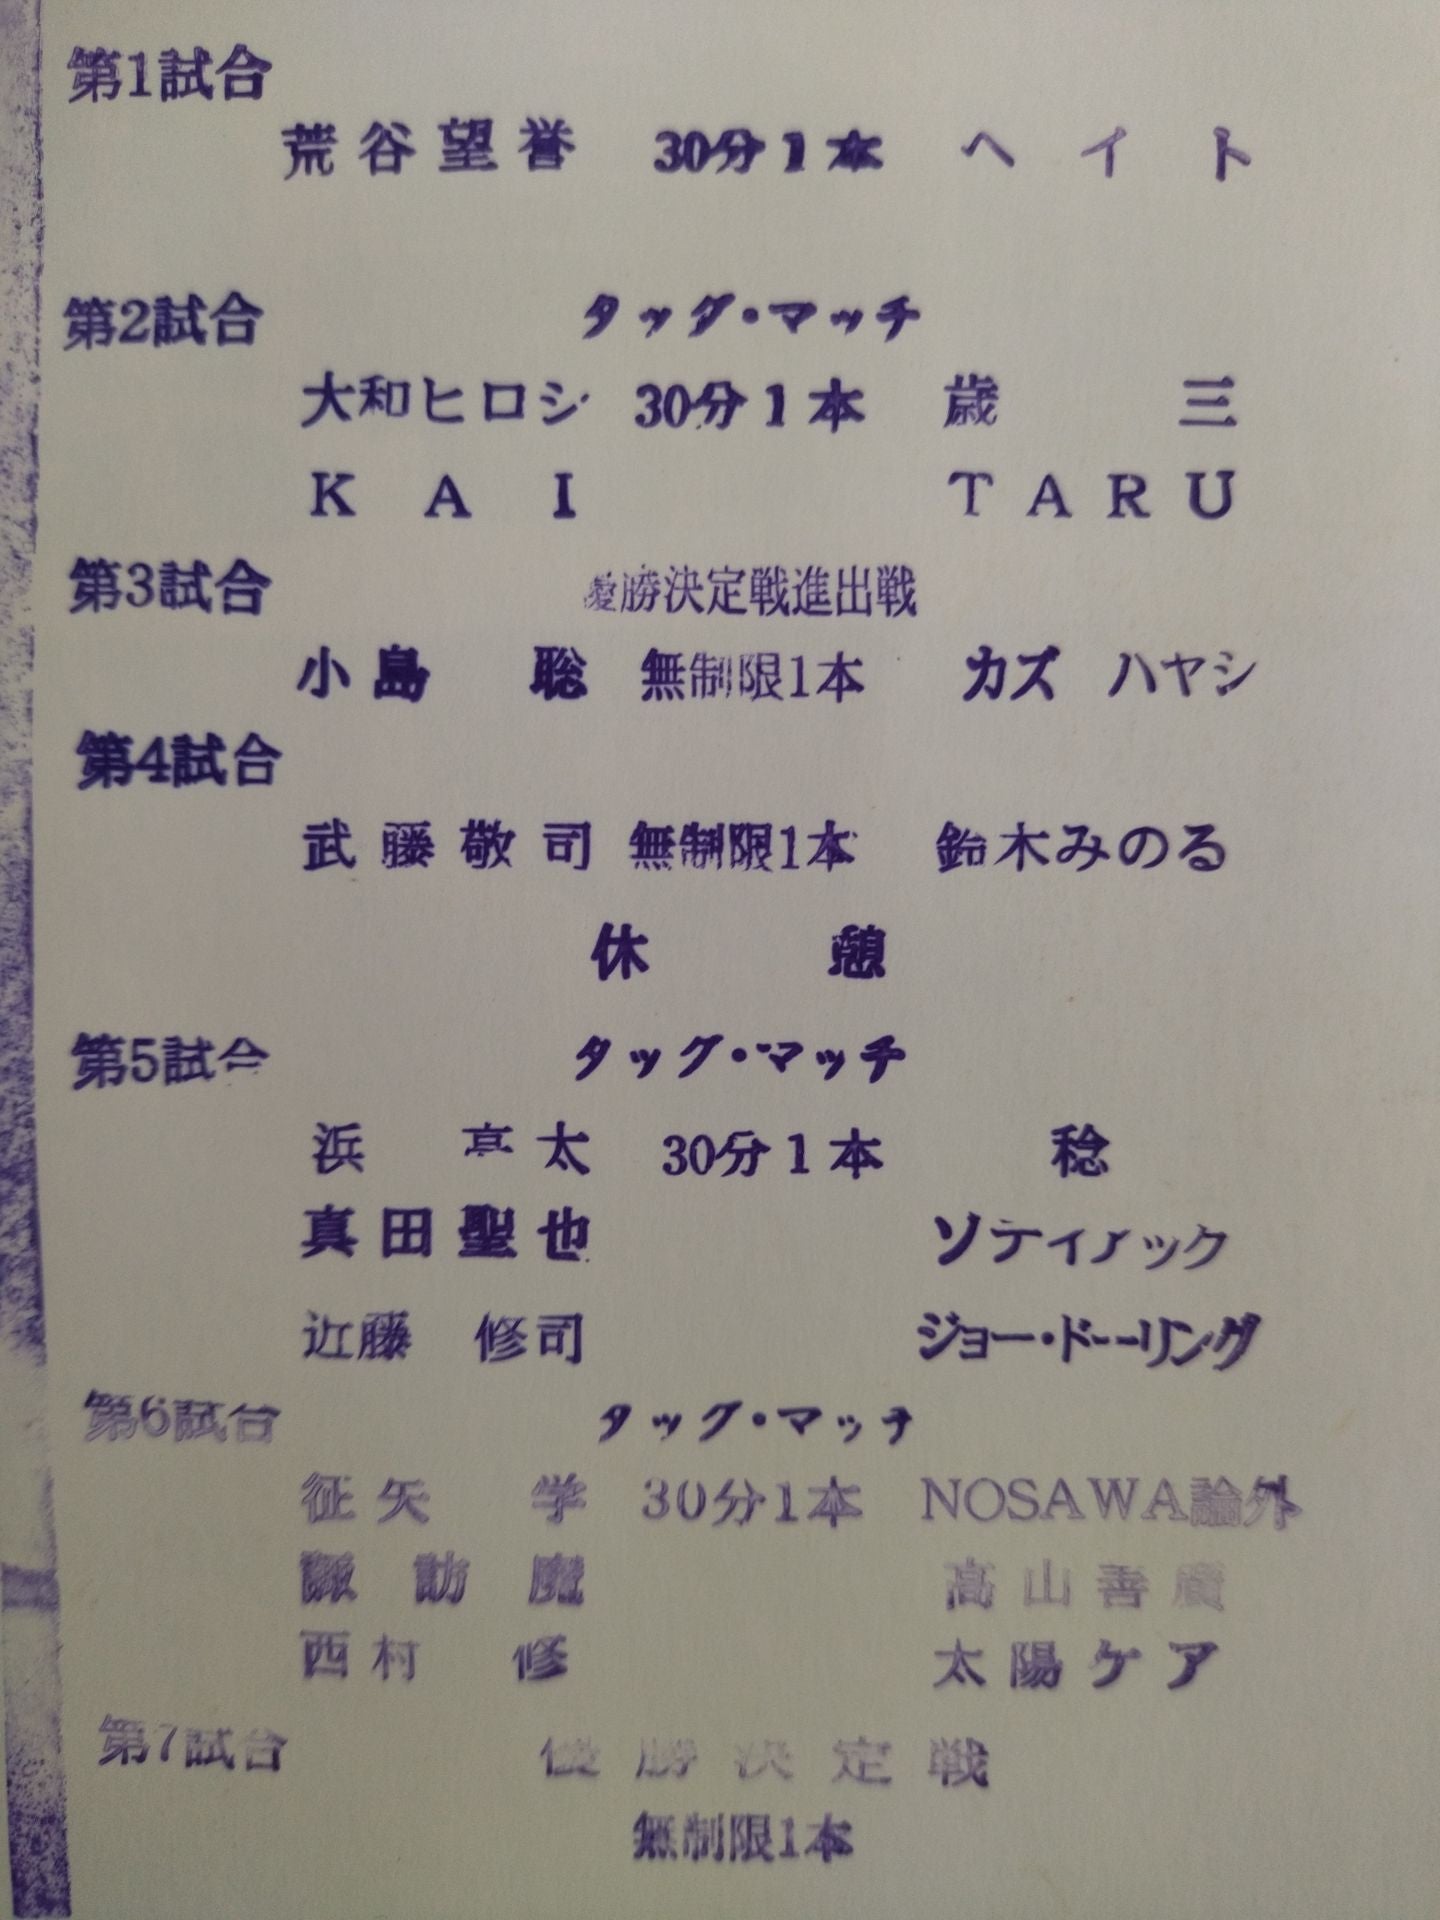 第1試合
荒谷望誉 30分1本 ヘイト
第2試合 タッグ・マッチ
大和ヒロシ 30分1本 歳三
KAI TARU
第3試合 優勝決定戦進出戦
小島 聡 無制限1本 カズ ハヤシ
第4試合
武藤敬司 無制限1本 鈴木みのる
休憩
第5試合 タッグ・マッチ
浜 亮太 30分1本 稔
真田聖也 ゾディアック
近藤 修司 ジョー・ドーリング
第6試合 タッグ・マッチ
征矢 学 30分1本 NOSAWA論外
諏訪魔 高山善廣
西村 修 太陽ケア
第7試合 優勝決定戦
無制限1本